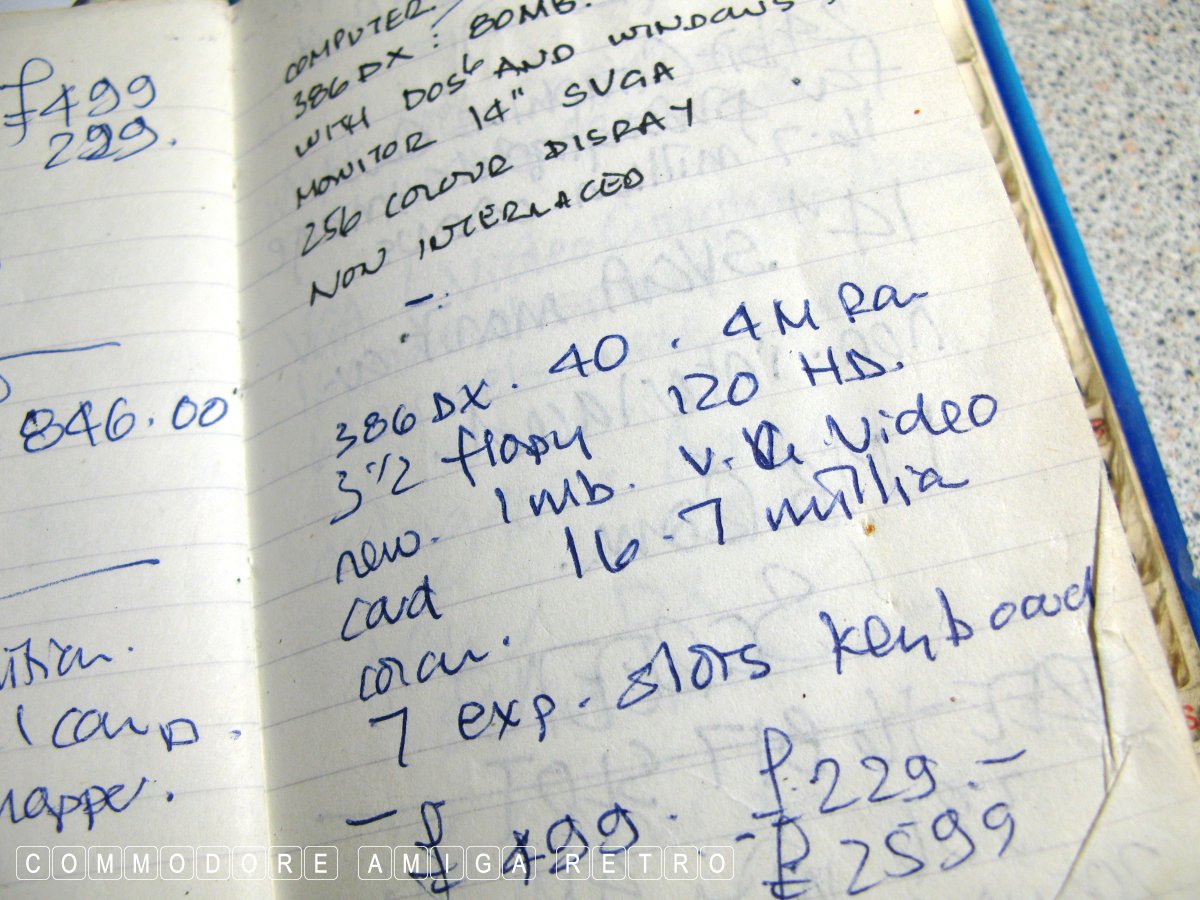 £499
299.
846.00
ition.
1 card.
napper.
COMPUTER
386DX : 80MB.
WITH DOS6 AND WINDOWS
MONITOR 14" SVGA
256 COLOUR DISPLAY
NON INTERLACED
386DX. 40. 4M Ra
3½ flopy 120 HD.
new. 1mb. Video
card 16.7 millia
colour.
7 exp. slots keyboard
- £499. £229.-
- £2599
COMMODORE AMIGA RETRO